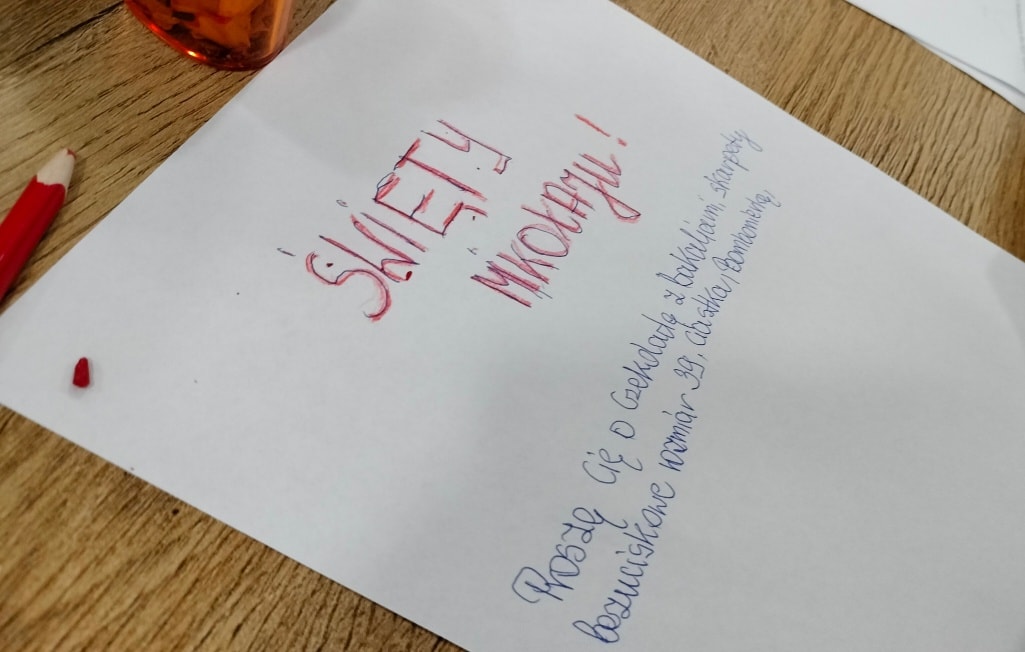 ŚWIĘTY
MIKOŁAJU!
Proszę Cię o czekoladę z bakaliami, skarpety
bezuciskowe rozmiar 39, ciastka, bombonierkę,